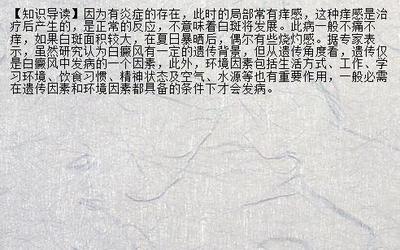 【知识导读】因为有炎症的存在，此时的局部常有痒感，这种痒感是治
疗后产生的，是正常的反应，不意味着白斑将发展。此病一般不痛不
痒，如果白斑面积较大，在夏日暴晒后，偶尔有些烧灼感。据专家表
示，虽然研究认为白癜风有一定的遗传背景，但从遗传角度看，遗传仅
是白癜风中发病的一个因素，此外，环境因素包括生活方式、工作、学
习环境、饮食习惯、精神状态及空气、水源等也有重要作用，一般必需
在遗传因素和环境因素都具备的条件下才会发病。